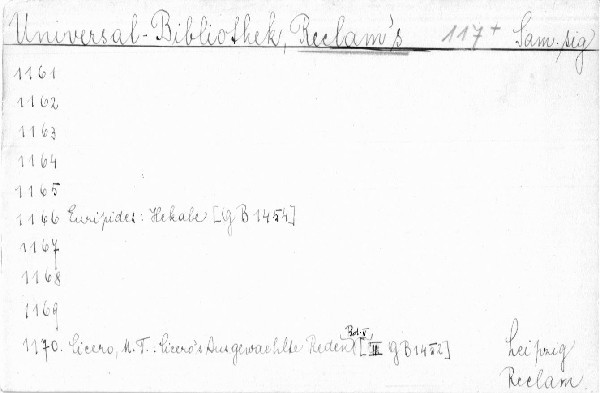 Universal-Bibliothek, Reclam's 117+ Sam. sig
1161
1162
1163
1164
1165
1166 Euripides: Hekabe [gB1454]
1167
1168
1169
1170. Cicero, M. T.: Cicero's Ausgewaehlte Reden, Bd. V, [III gB1452]
Leipzig
Reclam